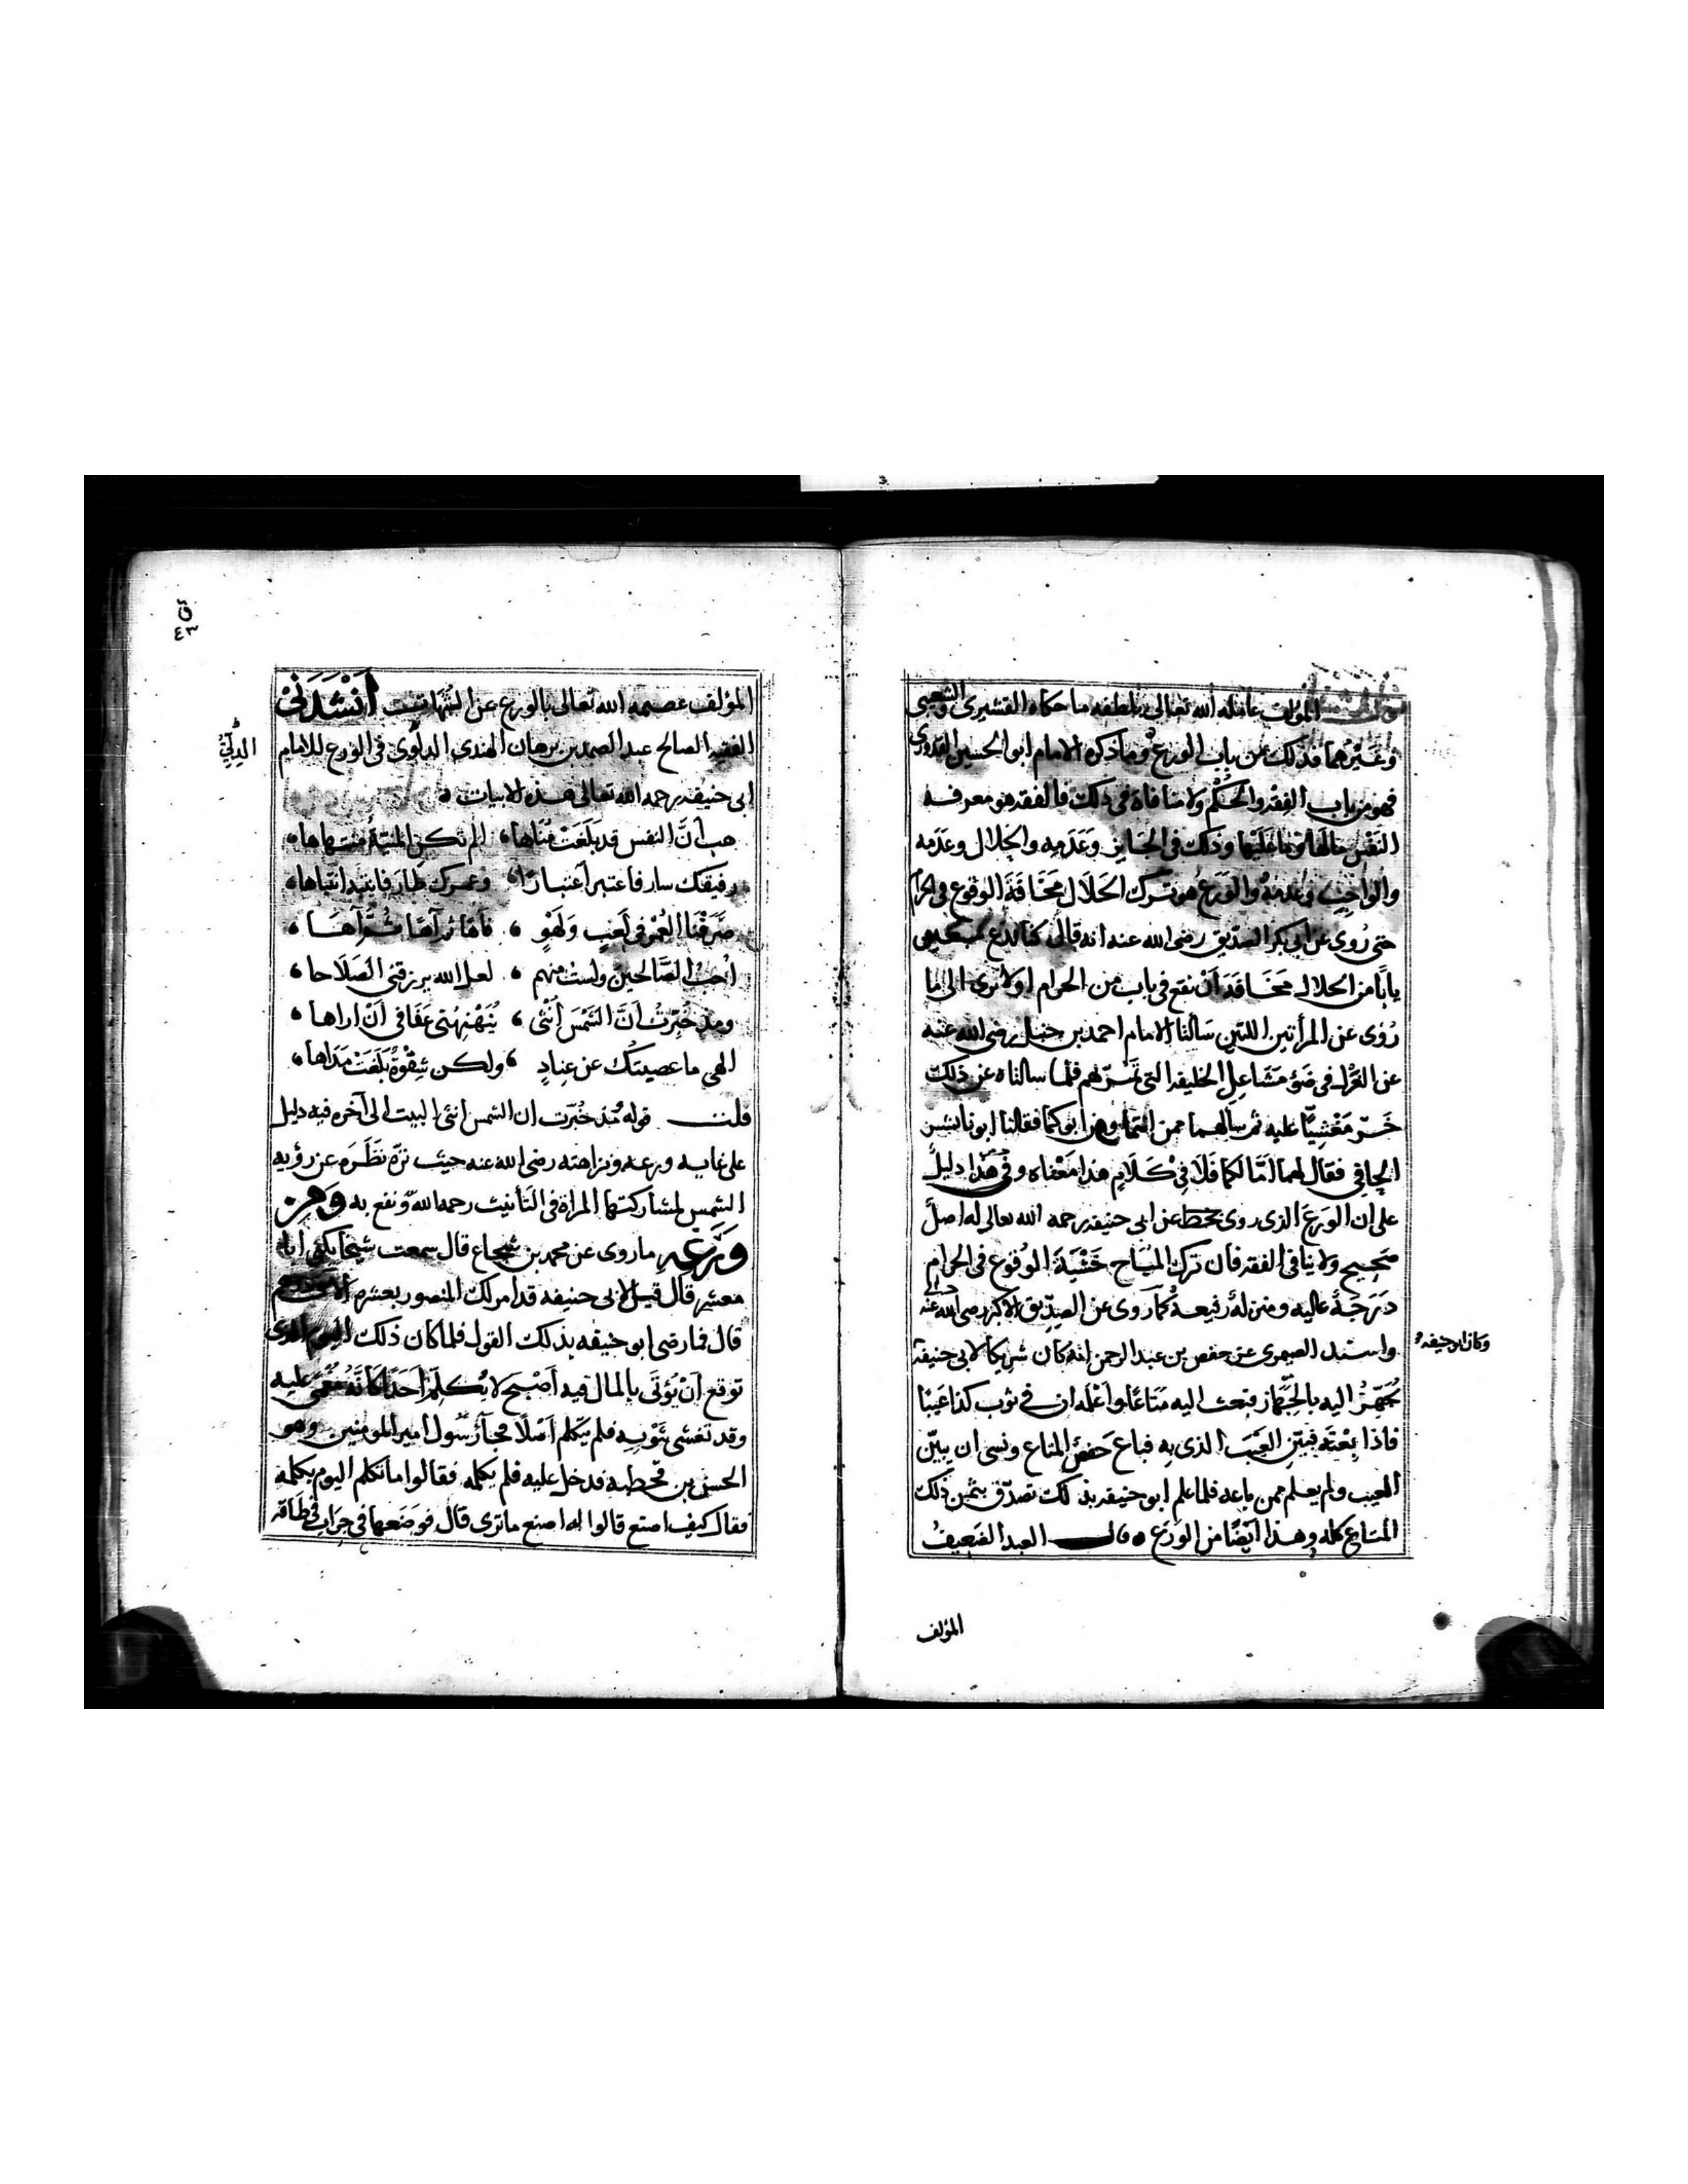 المؤلف عامله الله تعالى بلطفه ما حكاه القشيرى والشعيبى
وغَيْرُهما فذلك من باب الورع وما ذكره الامام ابو الحسين القدورى
فهو من باب الفِقْه والحُكْم ولا منافاة فى ذلك فالفقه هو معرفه
النَفْس مالَها وما عَلَيْها وذلك فى الجَايز وعَدَمِه والحلال وعَدَمه
والواجب وعدمه والوَرَع هو ترك الحَلَال مَخَافَةَ الوقوع فى الحرام
حتى رُوى عن ابى بكر الصدّيق رضى الله عنه انه قال كنا ندع سبعين
بابًا من الحلال مَخَافَةَ أنْ نقع فى باب من الحرام اولا نرى الى ما
رُوى عن المرأتين اللتين سَالتا الامام احمد بن حنبل رضى الله عنه
عن الغَزْل فى ضَوْء مَشَاعِلِ الخليفه التى تَمُرّ بهم فلما سالتاه عن ذلك
خَرّ مَغْشِيًّا عليه ثم سالهما ممن انتما ومن ابوكما فقالتا ابونا بشر
الحافى فقال لهما امّا لكما فَلَا فِى كَلَامٍ هذا مَعْناه وفى هذا دليلٌ
على ان الوَرَع الذى روى عن ابى حنيفه رحمه الله تعالى له اصلٌ
صَحِيح ولا ينافى الفقه فان ترك المبَاح خَشْيَةَ الوُقوع فى الحرام
دَرَجَةٌ عاليه ومنزلهٌ رفيعةٌ كما روى عن الصِدّيق الاكبر رضى الله عنه
واسند الصيمرى عن حفص بن عبد الرحمن انه كان شريكا لابى حنيفة
وكان ابو حنيفه
يُجَهّزُ اليه بالجَهاز فبَعث اليه مَتَاعًا واَعْلَمه ان فى ثوب كذا عَيْبًا
فاذا بِعْتَه فبَيّن العَيْبَ الذى بِه فباع حَفْص المتاع ونسى ان يبيّن
العيب ولم يعلم ممن باعه فلما علم ابو حنيفه بذلك تصدّق بثمن ذلك
المتاع كله وهذا اَيْضًا من الوَرَع قال العبد الضَعِيفُ
المؤلف
ق ٤٣
المؤلف عصمه الله تعالى بالورع عن الشبهات اَنْشَدَنى
الفقيه الصالح عبد الصمد بن برهان الهندى الدلَّوى فى الورع للامام
الدِلِّىّ
ابى حنيفه رحمه الله تعالى هذه الابيات
هب اَنَّ النفس قد بَلَغَتْ مُنَاها الم تكن المنيّة مُنتهاها
رفيقك سار فاعتبر اعتبارًا وعمرك طار فانتبه انتباها
صَرَفْنَا العُمْر فى لَعِبٍ وَلَهْوٍ فَآهًا ثم آهًا ثُمَّ آهَا
اُحبّ الصَّالحين ولست منهم لعل الله يرزقنى الصَلَاحا
ومذ خُبِّرتُ اَنَّ الشمْسَ اُنْثَى يُنَهْنِهُنى عَفافى اَنْ اراها
الهى ما عصيتُك عن عِنادٍ ولكن شِقْوةٌ بَلَغَتْ مَدَاها
قلت قوله مُنذ خُبّرت ان الشمس انثى البيت الى آخره فيه دليل
على غايه ورعه ونزاهته رضى الله عنه حيث نزّه نَظَرَه عن رؤيه
الشمس لمشاركتها المراة فى التانيث رحمه الله ونفع به وَمِن
وَرَعِه ماروى عن محمد بن شجاع قال سمعت شيخا يكنى ابا
معشر قال قيل لابى حنيفه قد امر لك المنصور بعشره آلاف درهم
قال فما رضى ابو حنيفه بذلك القول فلما كان ذلك اليوم الذى
توقع اَنْ يُؤتَى بالمال فيه اَصْبَح لا يُكَلِّمُ اَحَدًا كأنّه مُغْمًى عليه
وقد تغشى بثَوْبِه فلم يتكلم اَصْلًا فجاء رَسُول امير المومنين وهو
الحسن بن قحطبه فدخل عليه فلم يكلمه فقالوا ما تكلم اليوم بكلمة
فقال كيف اصنع قالوا له اصنع ما ترى قال فوَضَعها فى جِرَاب فى طَاقه